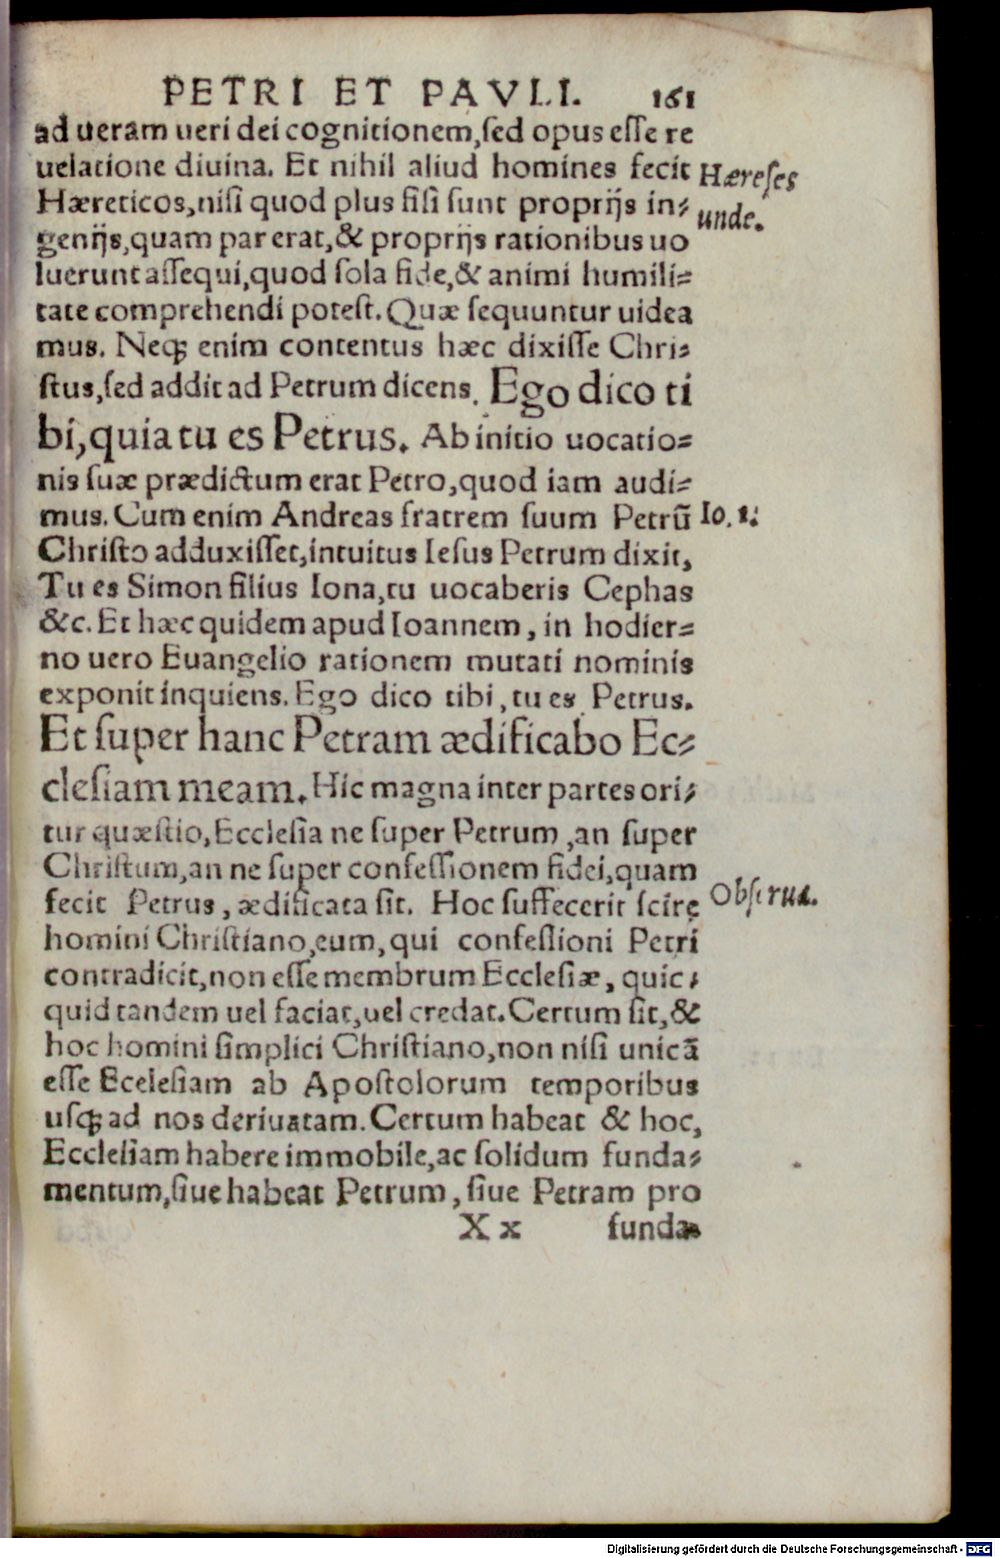 PETRI ET PAVLI. 161
ad ueram ueri dei cognitionem,sed opus esse re
uelatione diuina. Et nihil aliud homines fecit
Hæreses
Hæreticos,nisi quod plus fisi sunt proprijs in⸗
unde.
genijs,quam par erat,& proprijs rationibus uo
luerunt assequi,quod sola fide,& animi humili⸗
tate comprehendi potest. Quæ sequuntur uidea
mus. Neqꝫ enim contentus hæc dixisse Chri⸗
stus,sed addit ad Petrum dicens. Ego dico ti
bi,quia tu es Petrus. Ab initio uocatio⸗
nis suæ prædictum erat Petro,quod iam audi⸗
mus. Cum enim Andreas fratrem suum Petrū
Io. 1.
Christo adduxisset,intuitus Iesus Petrum dixit,
Tu es Simon filius Iona,tu uocaberis Cephas
&c. Et hæc quidem apud Ioannem, in hodier⸗
no uero Euangelio rationem mutati nominis
exponit inquiens. Ego dico tibi, tu es Petrus.
Et super hanc Petram ædificabo Ec⸗
clesiam meam. Hic magna inter partes ori⸗
tur quæstio,Ecclesia ne super Petrum ,an super
Christum,an ne super confessionem fidei,quam
fecit Petrus, ædificata sit. Hoc suffecerit scire
Obserua.
homini Christiano,eum,qui confessioni Petri
contradicit,non esse membrum Ecclesiæ, quic⸗
quid tandem uel faciat,uel credat. Certum sit,&
hoc homini simplici Christiano,non nisi unicā
esse Ecelesiam ab Apostolorum temporibus
usqꝫ ad nos deriuatam. Certum habeat & hoc,
Ecclesiam habere immobile,ac solidum funda⸗
mentum,siue habeat Petrum, siue Petram pro
X x funda⸗
Digitalisierung gefördert durch die Deutsche Forschungsgemeinschaft - DFG